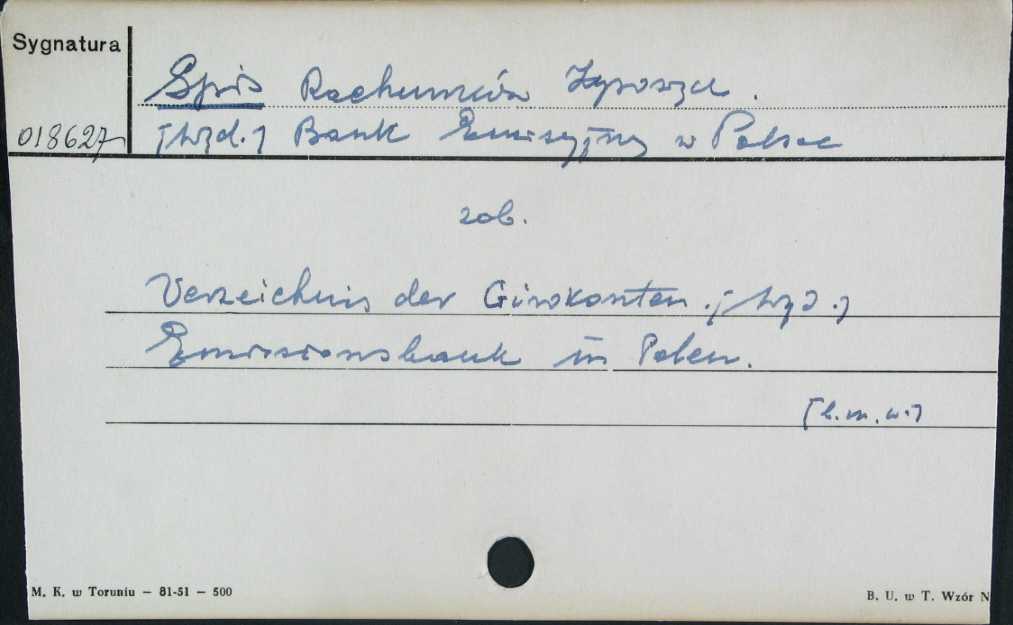 Sygnatura
018627
Spis Rachunków Żyrowych.
[Wyd.] Bank Emisyjny w Polsce
zob.
Verzeichnis der Girokonten. [Wyd.]
Emissionsbank in Polen.
[b.m.w.]
M. K. w Toruniu — 81-51 — 500
B. U. w T. Wzór N